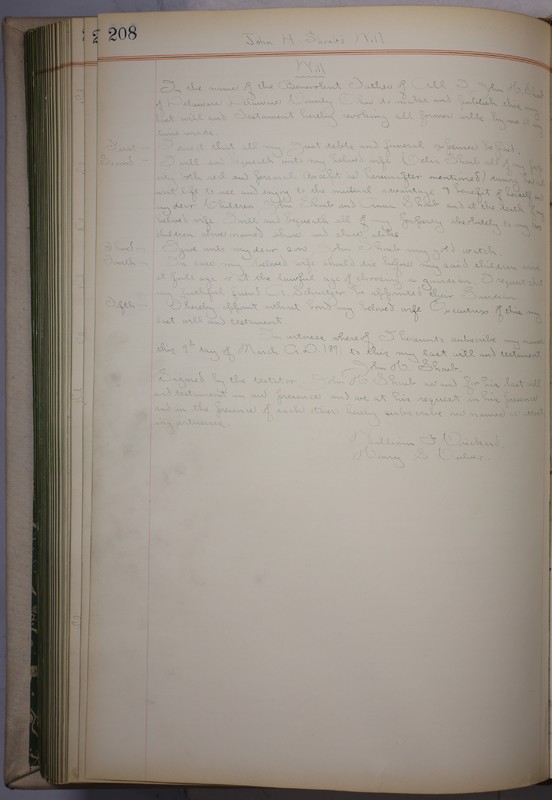 208
John H. Shaub's Will
Will
In the name of the Benevolent Father of All I John H. Shaub
of Delaware Delaware County Ohio do make and publish this my
last will and testament hereby revoking all former wills by me at any
time made.
First — I direct that all my just debts and funeral expenses be paid.
Second — I will and bequeath unto my beloved wife Shaub all of my
both real and personal (except as hereinafter mentioned) during her
life to use and enjoy to the mutual advantage & benefit of herself and
my dear Children John Shaub and Shaub and at the death of my
beloved wife I will and bequeath all of my property absolutely to my
children aforenamed share and share alike
Third — I give unto my dear son John Shaub my gold watch.
Fourth — In case my beloved wife should die before my said children are
at full age or at the lawful age of choosing a guardian I request that
my faithful friend be appointed their Guardian
Fifth — I hereby appoint without bond my beloved wife Executrix of this my
last will and testament
In witness whereof I hereunto subscribe my name
this 9th day of March A.D. 1891 to this my last will and testament
John H. Shaub.
Signed by the testator John H. Shaub as and for his last will
and testament in our presence and we at his request in his presence
and in the presence of each other hereby subscribe our names as
witnesses.
William F.
Henry S.